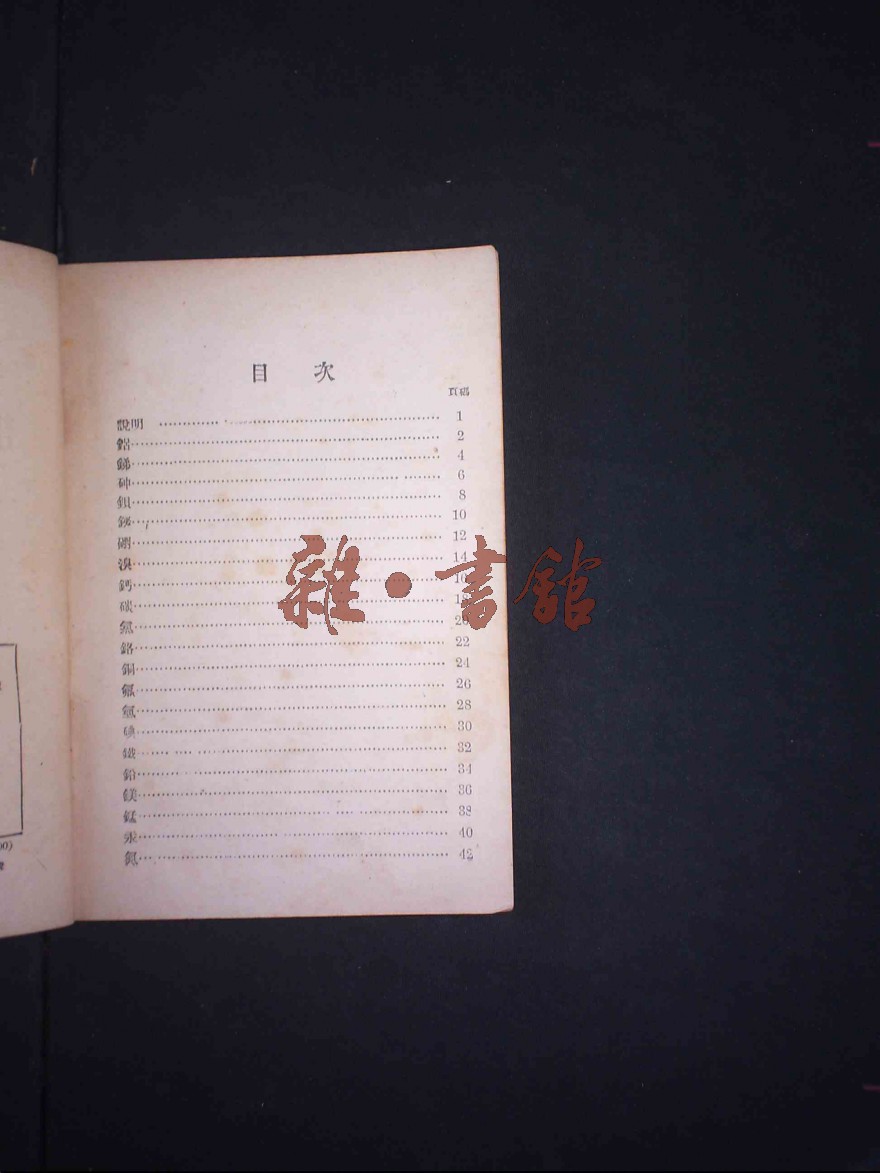 目 次
頁碼
說明 1
鋁 2
銻 4
砷 6
鋇 8
鉍 10
硼 12
溴 14
鈣 16
碳 18
氯 20
鉻 22
銅 24
氟 26
氫 28
碘 30
鐵 32
鉛 34
鎂 36
錳 38
汞 40
氮 42
雜·書館